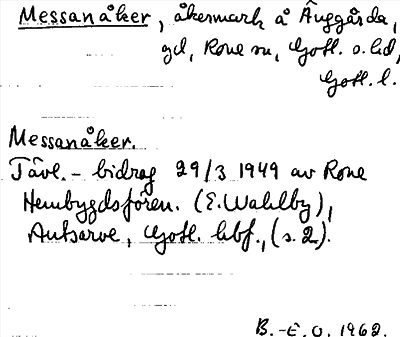 Messanåker, åkermark å Änggårda,
gd, Rone sn, Gotl. s. hd,
Gotl. l.
Messanåker.
Tävl.-bidrag 29/3 1949 av Rone
Hembygdsfören. (E. Wahlby),
Autsarve, Gotl. hbf., (s. 2).
B.-E. O. 1962.